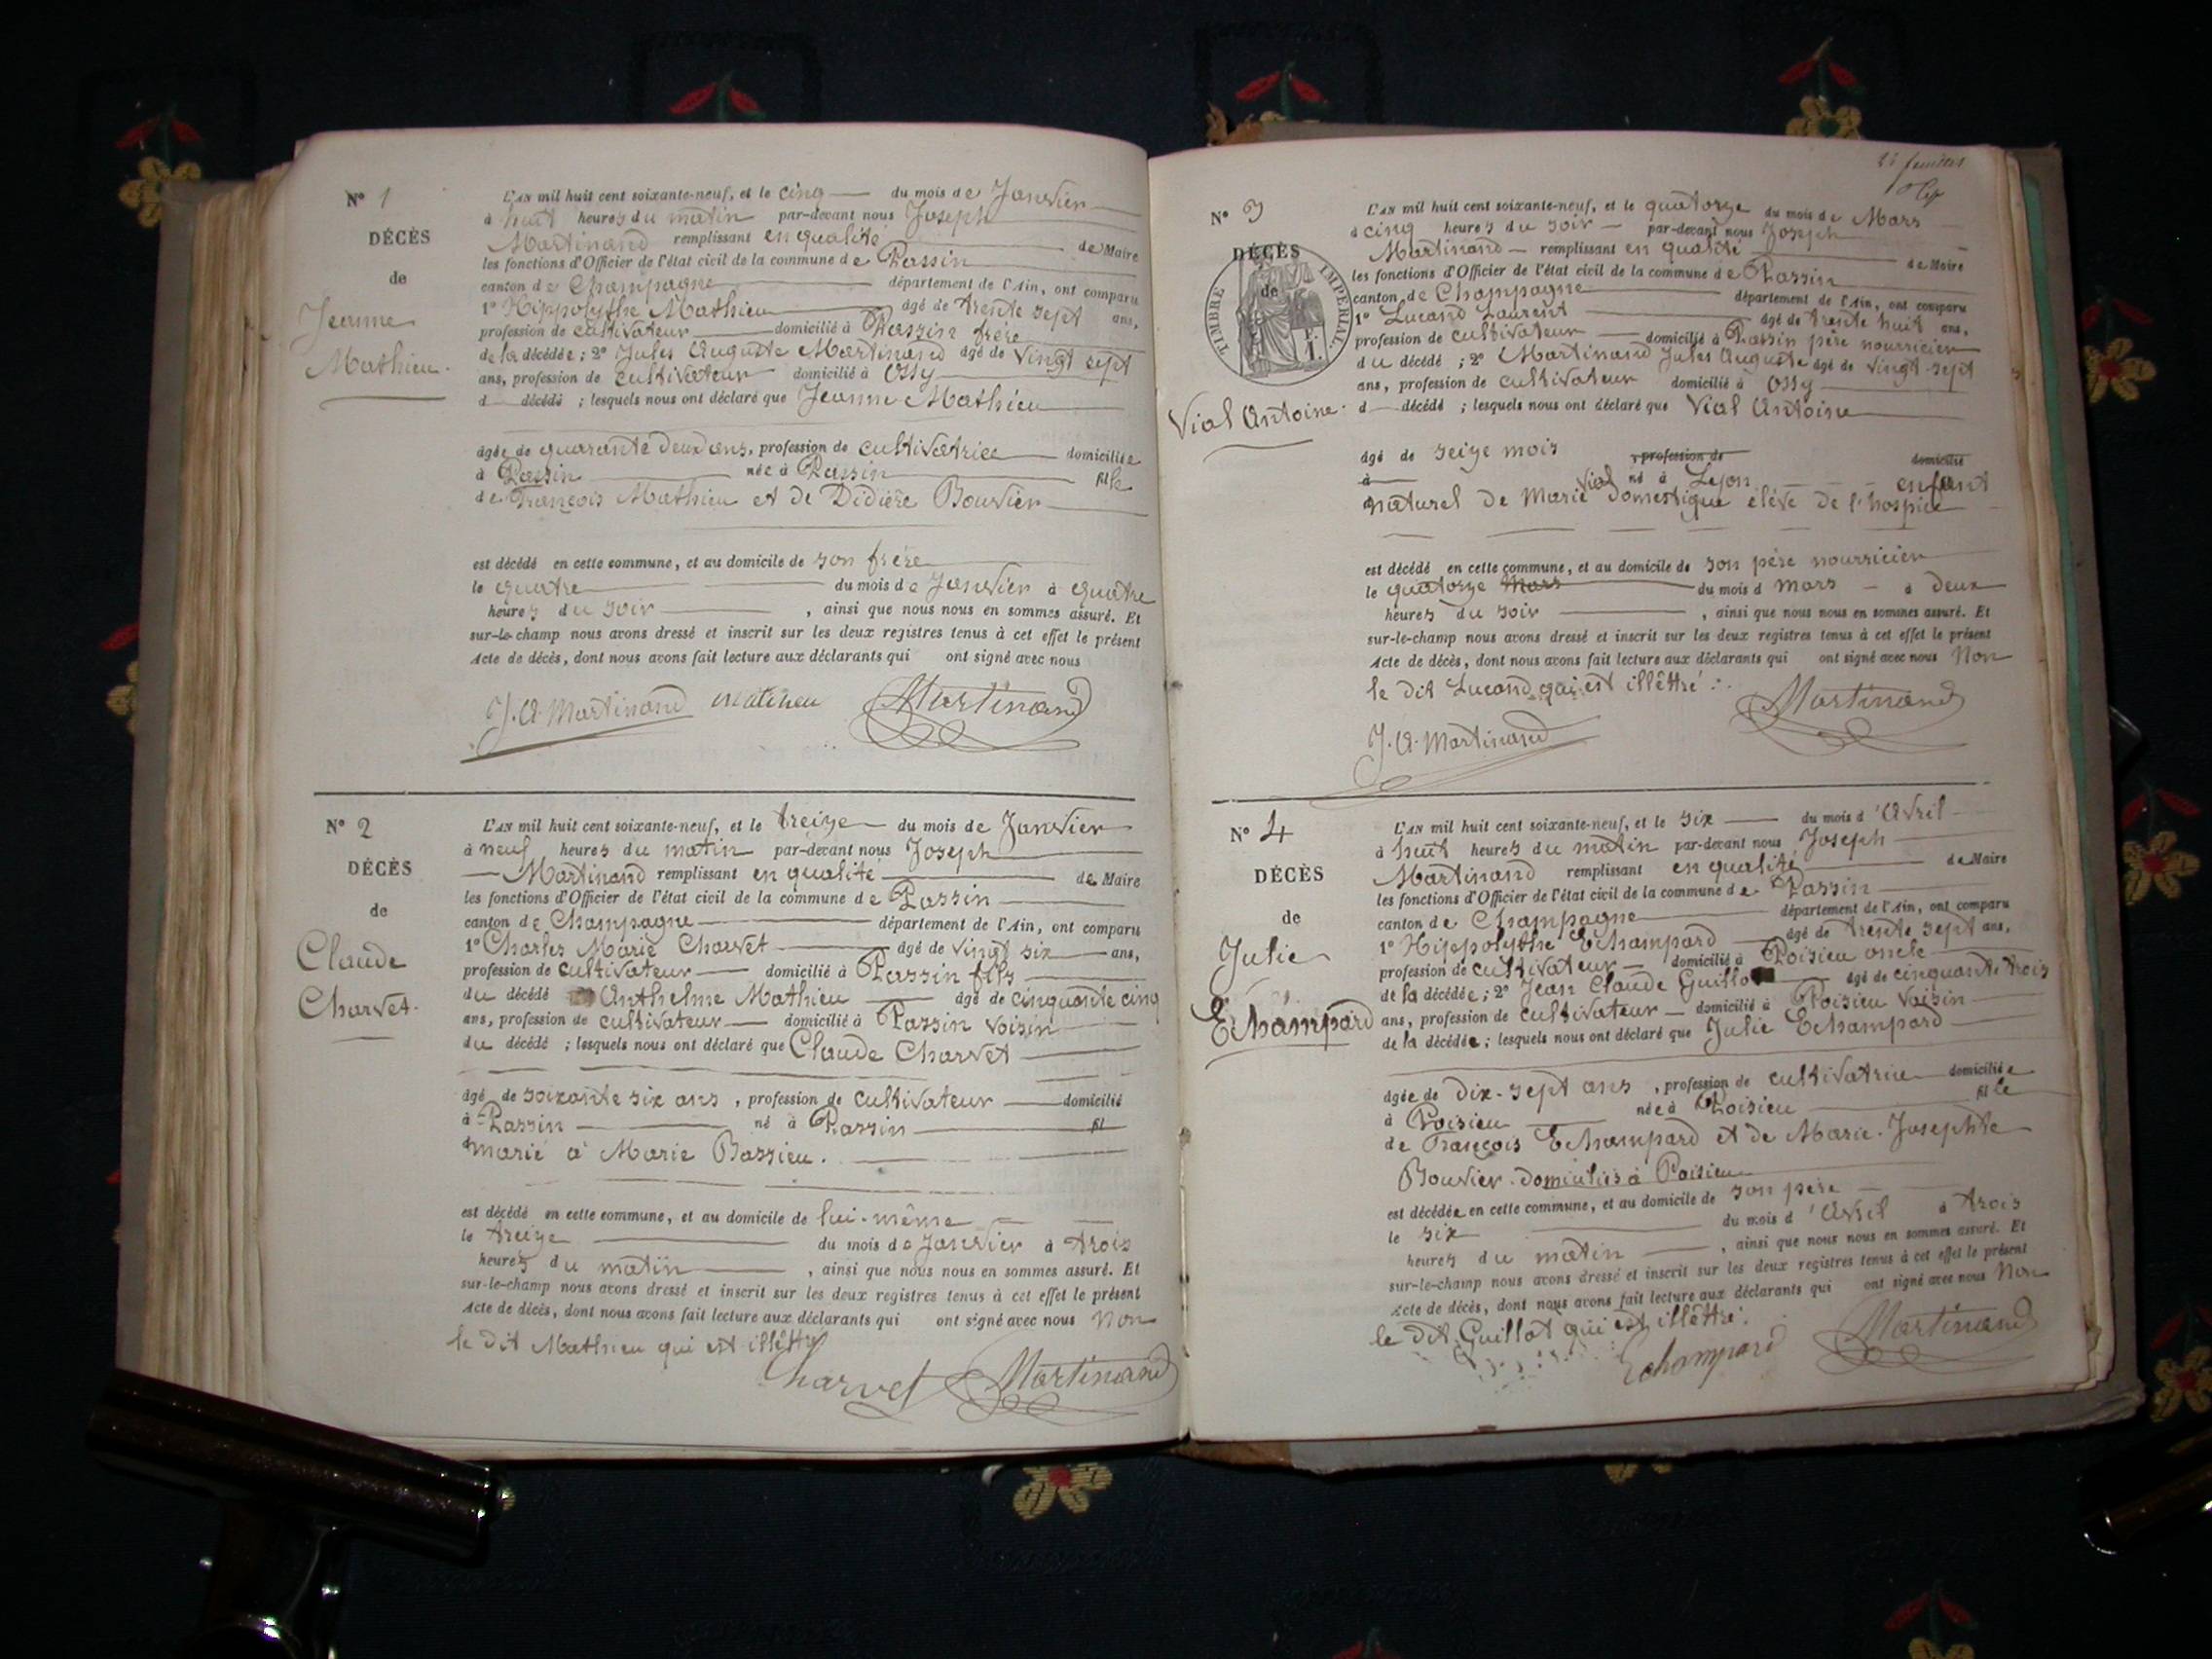 N° 1
DÉCÈS
de
Jeanne
Mathieu.
L'AN mil huit cent soixante-neuf, et le cinq du mois de Janvier
à huit heures du matin par-devant nous Joseph
Martinand remplissant en qualité de Maire
les fonctions d'Officier de l'état civil de la commune de Passin
canton de Champagne département de l'Ain, ont comparu
1° Hippolythe Mathieu âgé de trente sept ans,
profession de cultivateur domicilié à Passin frère
de la décédée ; 2° Jules Auguste Martinand âgé de vingt sept
ans, profession de cultivateur domicilié à Ossy
d décédé ; lesquels nous ont déclaré que Jeanne Mathieu
âgée de quarante deux ans, profession de cultivatrice domiciliée
à Passin née à Passin fille
de François Mathieu et de Didière Bouvier
est décédé en cette commune, et au domicile de son frère
le quatre du mois de Janvier à quatre
heures du soir , ainsi que nous nous en sommes assuré. Et
sur-le-champ nous avons dressé et inscrit sur les deux registres tenus à cet effet le présent
Acte de décès, dont nous avons fait lecture aux déclarants qui ont signé avec nous
J. A. Martinand Mathieu Martinand
N° 2
DÉCÈS
de
Claude
Charvet.
L'AN mil huit cent soixante-neuf, et le treize du mois de Janvier
à neuf heures du matin par-devant nous Joseph
Martinand remplissant en qualité de Maire
les fonctions d'Officier de l'état civil de la commune de Passin
canton de Champagne département de l'Ain, ont comparu
1° Charles Marie Charvet âgé de vingt six ans,
profession de cultivateur domicilié à Passin fils
du décédé Anthelme Mathieu âgé de cinquante cinq
ans, profession de cultivateur domicilié à Passin voisin
du décédé ; lesquels nous ont déclaré que Claude Charvet
âgé de soixante six ans , profession de cultivateur domicilié
à Passin né à Passin fil
marié à Marie Bassieu.
est décédé en cette commune, et au domicile de lui-même
le treize du mois de Janvier à trois
heures du matin , ainsi que nous nous en sommes assuré. Et
sur-le-champ nous avons dressé et inscrit sur les deux registres tenus à cet effet le présent
Acte de décès, dont nous avons fait lecture aux déclarants qui ont signé avec nous Non
le dit Mathieu qui est illêttré
Charvet Martinand
N° 3
DÉCÈS
de
TIMBRE IMPERIAL.
Vial Antoine.
L'AN mil huit cent soixante-neuf, et le quatorze du mois de Mars
à cinq heures du soir par-devant nous Joseph
Martinand remplissant en qualité de Maire
les fonctions d'Officier de l'état civil de la commune de Passin
canton de Champagne département de l'Ain, ont comparu
1° Lucand Laurent âgé de trente huit ans,
profession de cultivateur domicilié à Passin père nourricier
du décédé ; 2° Martinand Jules Auguste âgé de vingt-sept
ans, profession de cultivateur domicilié à Ossy
d décédé ; lesquels nous ont déclaré que Vial Antoine
âgé de seize mois , profession de domicilié
à né à Lyon enfant
naturel de Marie Vial domestique élève de l'hospice
est décédé en cette commune, et au domicile de son père nourricier
le quatorze Mars du mois d mars à deux
heures du soir , ainsi que nous nous en sommes assuré. Et
sur-le-champ nous avons dressé et inscrit sur les deux registres tenus à cet effet le présent
Acte de décès, dont nous avons fait lecture aux déclarants qui ont signé avec nous Non
le dit Lucand qui est illêttré.
J. A. Martinand Martinand
N° 4
DÉCÈS
de
Julie
Echampard
L'AN mil huit cent soixante-neuf, et le six du mois d'Avril
à huit heures du matin par-devant nous Joseph
Martinand remplissant en qualité de Maire
les fonctions d'Officier de l'état civil de la commune de Passin
canton de Champagne département de l'Ain, ont comparu
1° Hippolythe Echampard âgé de trente sept ans,
profession de cultivateur domicilié à Poisieu oncle
de la décédée ; 2° Jean Claude Guillot âgé de cinquante trois
ans, profession de cultivateur domicilié à Poisieu voisin
de la décédée ; lesquels nous ont déclaré que Julie Echampard
âgée de dix-sept ans , profession de cultivatrice domiciliée
à Poisieu née à Poisieu fille
de François Echampard et de Marie-Josephte
Bouvier domiciliés à Poisieu
est décédée en cette commune, et au domicile de son père
le six du mois d'Avril à trois
heures du matin , ainsi que nous nous en sommes assuré. Et
sur-le-champ nous avons dressé et inscrit sur les deux registres tenus à cet effet le présent
Acte de décès, dont nous avons fait lecture aux déclarants qui ont signé avec nous Non
le dit Guillot qui est illêttré.
Echampard Martinand